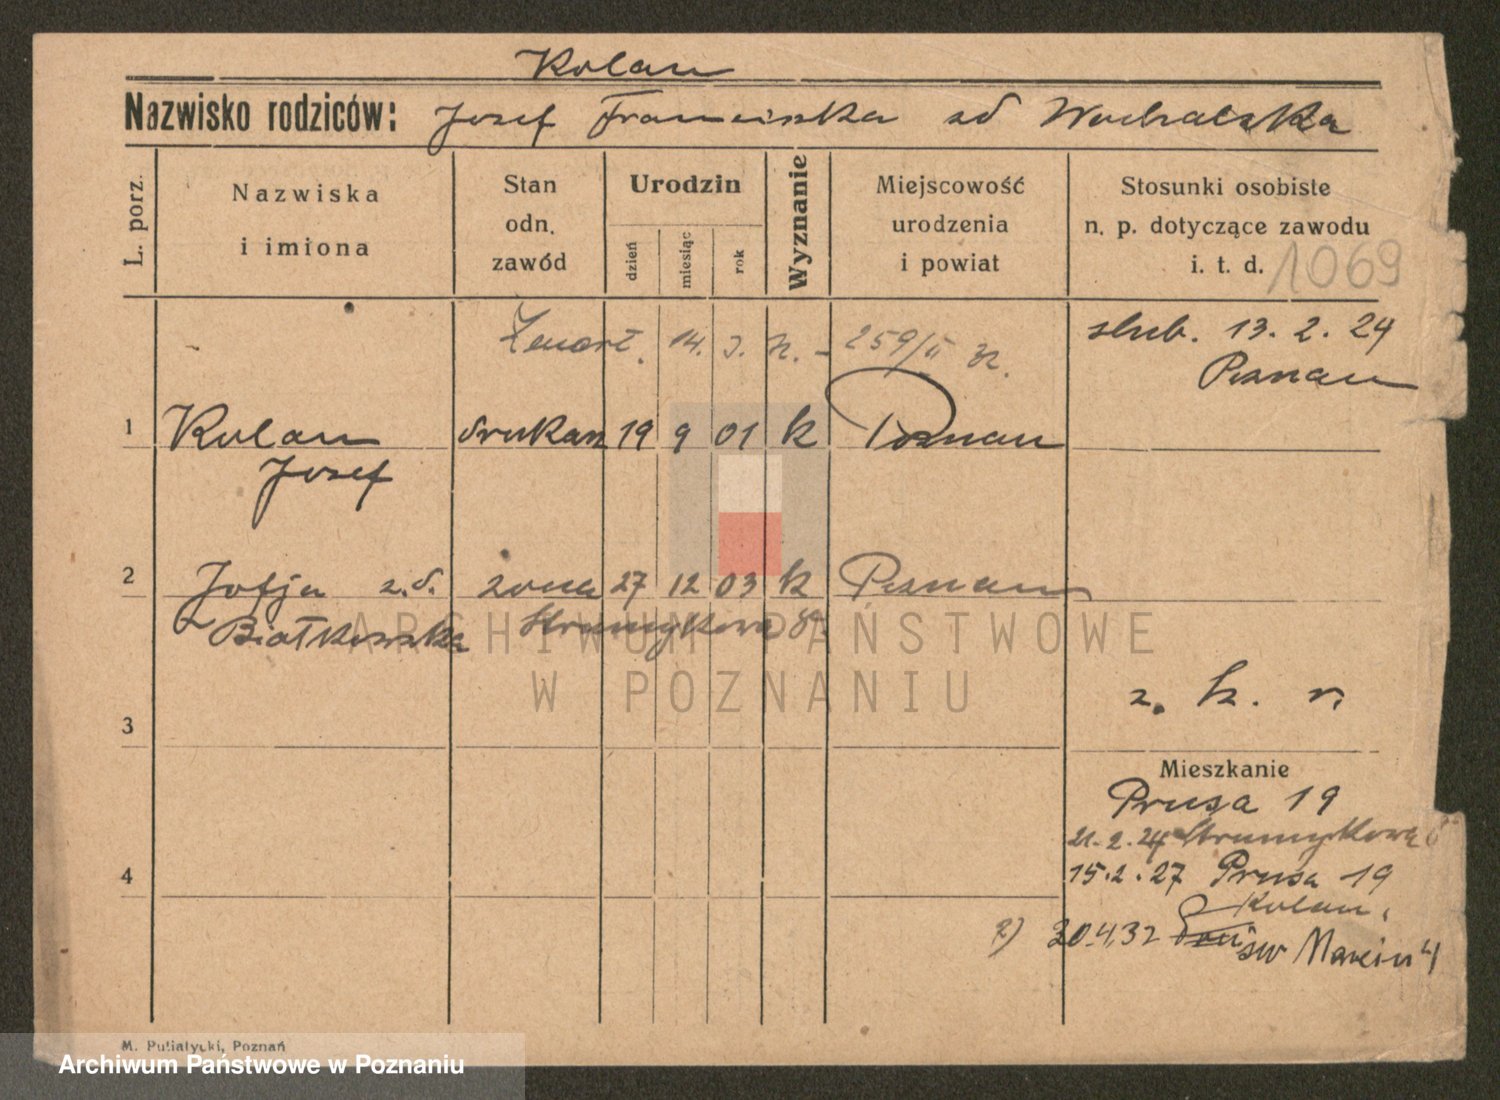 Kolan
Nazwisko rodziców: Josef Franciszka zd Wochalska
L. porz.
Nazwiska i imiona
Stan odn. zawód
Urodzin
dzień
miesiąc
rok
Wyznanie
Miejscowość urodzenia i powiat
Stosunki osobiste n. p. dotyczące zawodu i. t. d.
1069
14. 3. 259/II
slub. 13. 2. 24
Poznan
1 Kolan drukarz 19 9 01 k Poznan
Josef
2 Zofja z. d. zona 27 12 03 k Poznan
Białkowska Strumykowa 8.
ARCHIWUM PAŃSTWOWE
W POZNANIU
z. k. r.
3
Mieszkanie
Prusa 19
21.2.24 Strumykowa
4
15.2.27 Prusa 19
Kolan
2) 30.4.32 sw Marcin 4
M. Putiatycki, Poznań
Archiwum Państwowe w Poznaniu